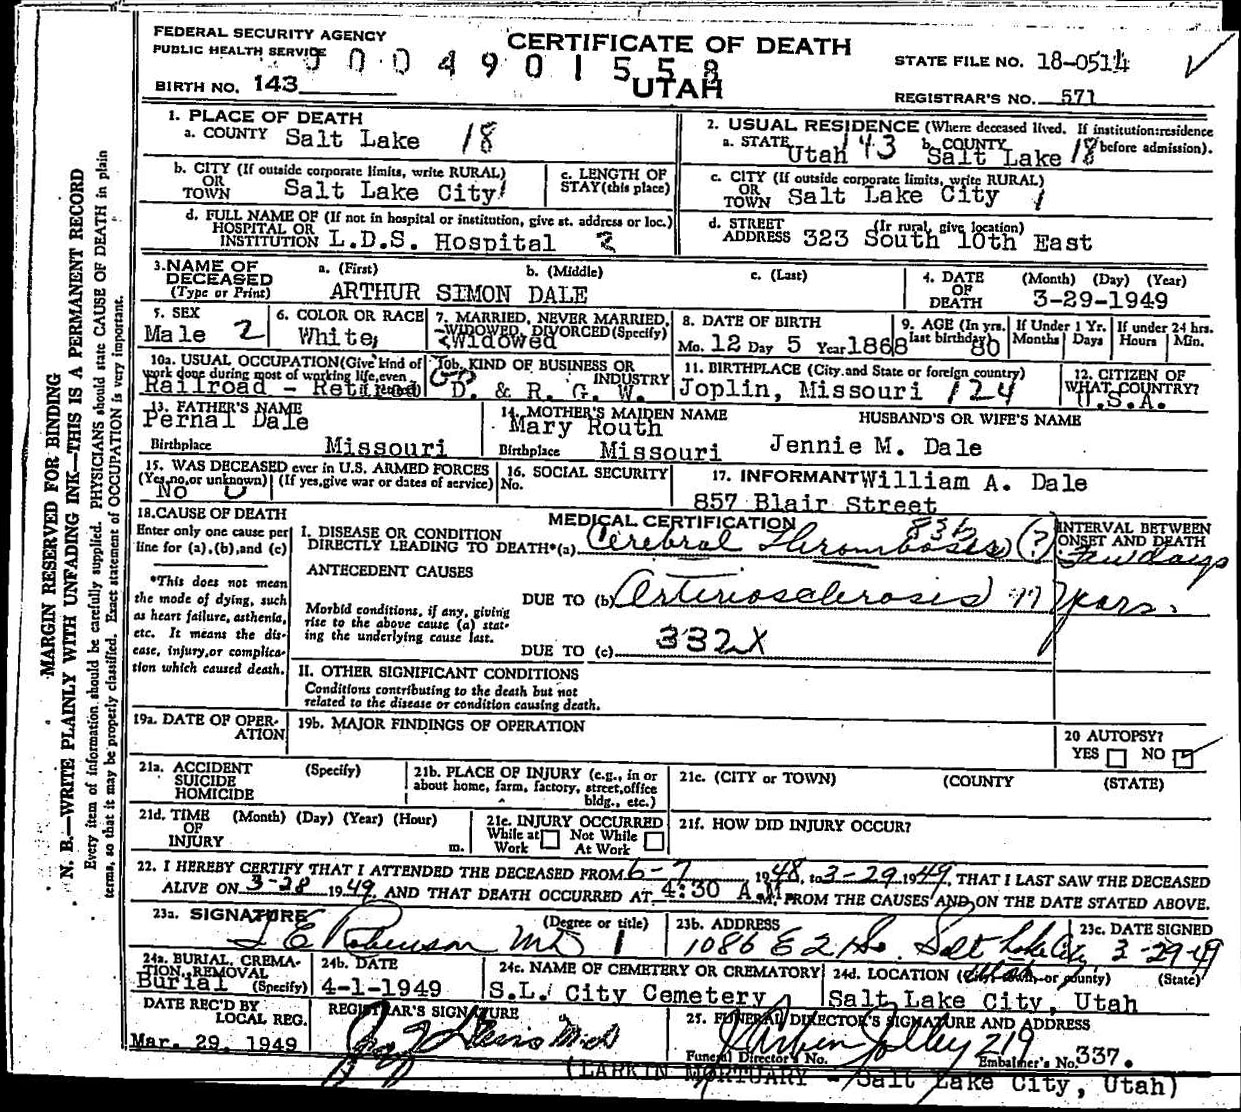 FEDERAL SECURITY AGENCY
PUBLIC HEALTH SERVICE
CERTIFICATE OF DEATH
UTAH
STATE FILE NO. 18-0514
BIRTH NO. 143
REGISTRAR'S NO. 571
1. PLACE OF DEATH
a. COUNTY Salt Lake 18
2. USUAL RESIDENCE (Where deceased lived. If institution: residence before admission).
a. STATE Utah 143 b. COUNTY Salt Lake 18
b. CITY (If outside corporate limits, write RURAL) OR TOWN Salt Lake City
c. LENGTH OF STAY (this place)
c. CITY (If outside corporate limits, write RURAL) OR TOWN Salt Lake City 1
d. FULL NAME OF (If not in hospital or institution, give st. address or loc.) HOSPITAL OR INSTITUTION L.D.S. Hospital 2
d. STREET ADDRESS (If rural, give location) 323 South 10th East
3. NAME OF DECEASED (Type or Print)
a. (First) b. (Middle) c. (Last)
ARTHUR SIMON DALE
4. DATE OF DEATH (Month) (Day) (Year)
3-29-1949
5. SEX Male 2
6. COLOR OR RACE White
7. MARRIED, NEVER MARRIED, WIDOWED, DIVORCED (Specify) Widowed
8. DATE OF BIRTH Mo. 12 Day 5 Year 1868
9. AGE (In yrs. last birthday) 80
If Under 1 Yr. Months Days
If under 24 hrs. Hours Min.
10a. USUAL OCCUPATION (Give kind of work done during most of working life, even if retired) Railroad - Retired
10b. KIND OF BUSINESS OR INDUSTRY D. & R. G. W.
11. BIRTHPLACE (City and State or foreign country) Joplin, Missouri 124
12. CITIZEN OF WHAT COUNTRY? U.S.A.
13. FATHER'S NAME Pernal Dale
Birthplace Missouri
14. MOTHER'S MAIDEN NAME Mary Routh
Birthplace Missouri
HUSBAND'S OR WIFE'S NAME
Jennie M. Dale
15. WAS DECEASED ever in U.S. ARMED FORCES
(Yes, no, or unknown) (If yes, give war or dates of service)
No
16. SOCIAL SECURITY No.
17. INFORMANT William A. Dale
857 Blair Street
18. CAUSE OF DEATH
Enter only one cause per line for (a), (b), and (c)
*This does not mean the mode of dying, such as heart failure, asthenia, etc. It means the disease, injury, or complication which caused death.
MEDICAL CERTIFICATION
I. DISEASE OR CONDITION DIRECTLY LEADING TO DEATH*(a) Cerebral Thrombosis (?) 83b
INTERVAL BETWEEN ONSET AND DEATH
Few days
ANTECEDENT CAUSES
Morbid conditions, if any, giving rise to the above cause (a) stating the underlying cause last.
DUE TO (b) Arteriosclerosis years.
DUE TO (c) 332X
II. OTHER SIGNIFICANT CONDITIONS
Conditions contributing to the death but not related to the disease or condition causing death.
19a. DATE OF OPERATION
19b. MAJOR FINDINGS OF OPERATION
20 AUTOPSY?
YES NO
21a. ACCIDENT SUICIDE HOMICIDE (Specify)
21b. PLACE OF INJURY (e.g., in or about home, farm, factory, street, office bldg., etc.)
21c. (CITY or TOWN) (COUNTY) (STATE)
21d. TIME OF INJURY (Month) (Day) (Year) (Hour) m.
21e. INJURY OCCURRED
While at Work Not While At Work
21f. HOW DID INJURY OCCUR?
22. I HEREBY CERTIFY THAT I ATTENDED THE DECEASED FROM 6-7 1948, to 3-29 1949, THAT I LAST SAW THE DECEASED
ALIVE ON 3-28 1949, AND THAT DEATH OCCURRED AT 4:30 A.M. FROM THE CAUSES AND ON THE DATE STATED ABOVE.
23a. SIGNATURE (Degree or title)
L E Robinson MD 1
23b. ADDRESS
1086 E 21 So. Salt Lake City
23c. DATE SIGNED
3-29-49
24a. BURIAL, CREMATION, REMOVAL (Specify) Burial
24b. DATE 4-1-1949
24c. NAME OF CEMETERY OR CREMATORY S.L. City Cemetery
24d. LOCATION (City, town, or county) (State) Salt Lake City, Utah
DATE REC'D BY LOCAL REG. Mar. 29, 1949
REGISTRAR'S SIGNATURE
25. FUNERAL DIRECTOR'S SIGNATURE AND ADDRESS
Funeral Director's No. 219
Embalmer's No. 337.
(LARKIN MORTUARY - Salt Lake City, Utah)
MARGIN RESERVED FOR BINDING
N. B.—WRITE PLAINLY WITH UNFADING INK—THIS IS A PERMANENT RECORD
Every item of information should be carefully supplied. PHYSICIANS should state CAUSE OF DEATH in plain
terms, so that it may be properly classified. Exact statement of OCCUPATION is very important.